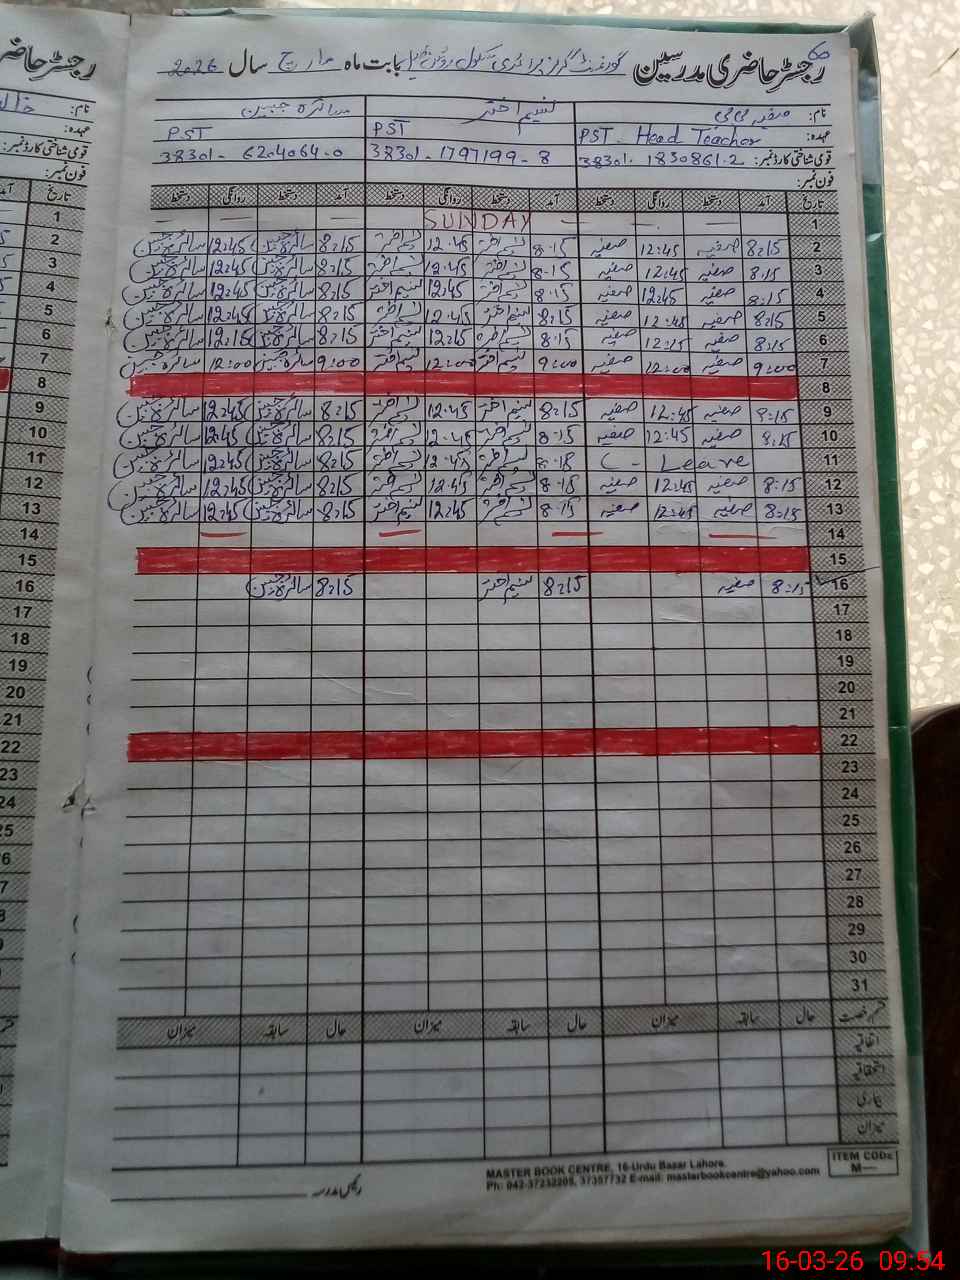 رجسٹر حاضری مدرسین گورنمنٹ گرلز پرائمری سکول بابت ماہ مارچ سال 2026
60
نام: صفیہ بی بی نسیم اختر سائرہ جبین
عہدہ: PST - Head Teacher PST PST
قومی شناختی کارڈ نمبر: 38301-1830861-2 38301-1797199-8 38301-6204064-0
فون نمبر:
تاریخ آمد دستخط روانگی دستخط آمد دستخط روانگی دستخط آمد دستخط روانگی دستخط
1 SUNDAY
2 8:15 صفیہ 12:45 صفیہ 8:15 نسیم اختر 12:45 نسیم اختر 8:15 سائرہ جبین 12:45 سائرہ جبین
3 8:15 صفیہ 12:45 صفیہ 8:15 نسیم اختر 12:45 نسیم اختر 8:15 سائرہ جبین 12:45 سائرہ جبین
4 8:15 صفیہ 12:45 صفیہ 8:15 نسیم اختر 12:45 نسیم اختر 8:15 سائرہ جبین 12:45 سائرہ جبین
5 8:15 صفیہ 12:45 صفیہ 8:15 نسیم اختر 12:45 نسیم اختر 8:15 سائرہ جبین 12:45 سائرہ جبین
6 8:15 صفیہ 12:15 صفیہ 8:15 نسیم اختر 12:15 نسیم اختر 8:15 سائرہ جبین 12:15 سائرہ جبین
7 9:00 صفیہ 12:00 صفیہ 9:00 نسیم اختر 12:00 نسیم اختر 9:00 سائرہ جبین 12:00 سائرہ جبین
8
9 8:15 صفیہ 12:45 صفیہ 8:15 نسیم اختر 12:45 نسیم اختر 8:15 سائرہ جبین 12:45 سائرہ جبین
10 8:15 صفیہ 12:45 صفیہ 8:15 نسیم اختر 12:45 نسیم اختر 8:15 سائرہ جبین 12:45 سائرہ جبین
11 C-Leave 8:15 نسیم اختر 12:45 نسیم اختر 8:15 سائرہ جبین 12:45 سائرہ جبین
12 8:15 صفیہ 12:45 صفیہ 8:15 نسیم اختر 12:45 نسیم اختر 8:15 سائرہ جبین 12:45 سائرہ جبین
13 8:15 صفیہ 12:45 صفیہ 8:15 نسیم اختر 12:45 نسیم اختر 8:15 سائرہ جبین 12:45 سائرہ جبین
14
15
16 8:15 صفیہ 8:15 نسیم اختر 8:15 سائرہ جبین
17
18
19
20
21
22
23
24
25
26
27
28
29
30
31
قسم رخصت حال سابقہ میزان حال سابقہ میزان حال سابقہ میزان
اتفاقیہ
استحقاقیہ
بیماری
میزان
رئیس مدرسہ
MASTER BOOK CENTRE, 16-Urdu Bazar Lahore.
Ph: 042-37232205, 37357732 E-mail: masterbookcentre@yahoo.com
ITEM CODE
M—
16-03-26 09:54